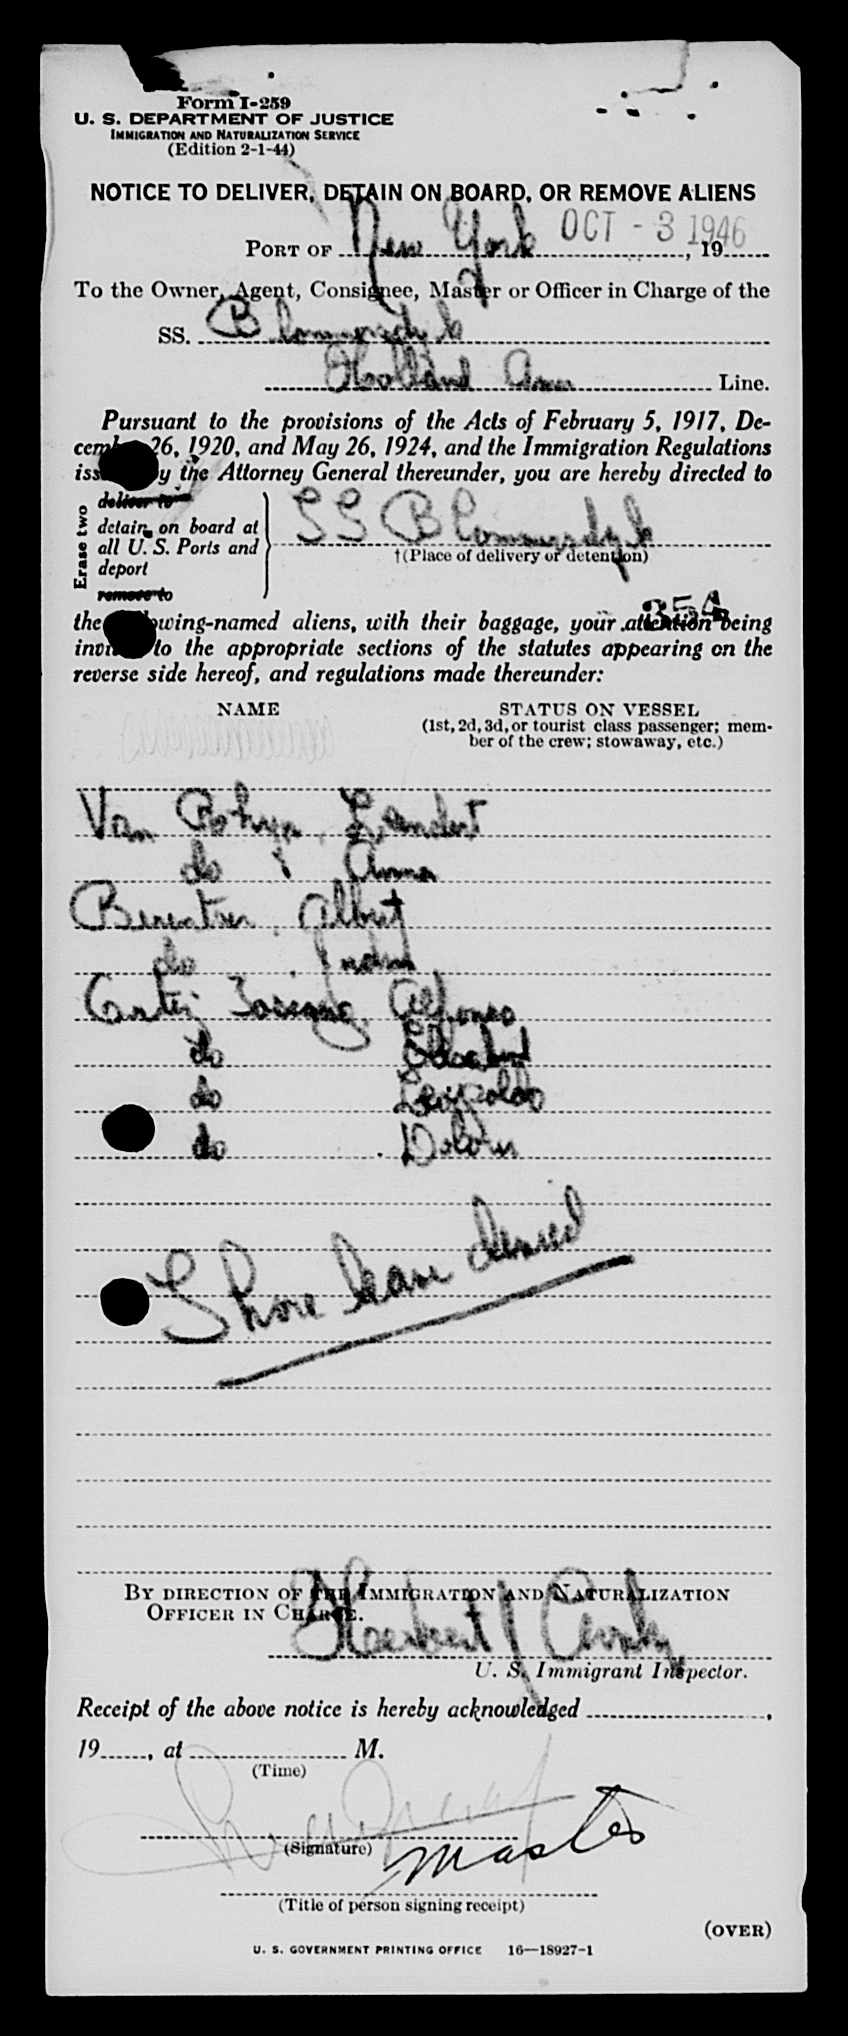 Form I-259
U. S. DEPARTMENT OF JUSTICE
IMMIGRATION AND NATURALIZATION SERVICE
(Edition 2-1-44)
NOTICE TO DELIVER, DETAIN ON BOARD, OR REMOVE ALIENS
PORT OF New York OCT - 3 1946, 19
To the Owner, Agent, Consignee, Master or Officer in Charge of the
SS. Blommersdyk
Holland Amer Line.
Pursuant to the provisions of the Acts of February 5, 1917, De-
cember 26, 1920, and May 26, 1924, and the Immigration Regulations
issued by the Attorney General thereunder, you are hereby directed to
Erase two
deliver to
detain on board at
all U. S. Ports and
deport
remove to
SS Blommersdyk
†(Place of delivery or detention)
354
the following-named aliens, with their baggage, your attention being
invited to the appropriate sections of the statutes appearing on the
reverse side hereof, and regulations made thereunder:
NAME
STATUS ON VESSEL
(1st, 2d, 3d, or tourist class passenger; mem-
ber of the crew; stowaway, etc.)
Van
do Anna
Albert
do
Alfonso
do
do Leopoldo
do Dolores
Shore leave denied
BY DIRECTION OF THE IMMIGRATION AND NATURALIZATION
OFFICER IN CHARGE.
Herbert J
U. S. Immigrant Inspector.
Receipt of the above notice is hereby acknowledged ,
19 , at M.
(Time)
(Signature)
Master
(Title of person signing receipt)
(OVER)
U. S. GOVERNMENT PRINTING OFFICE 16—18927-1